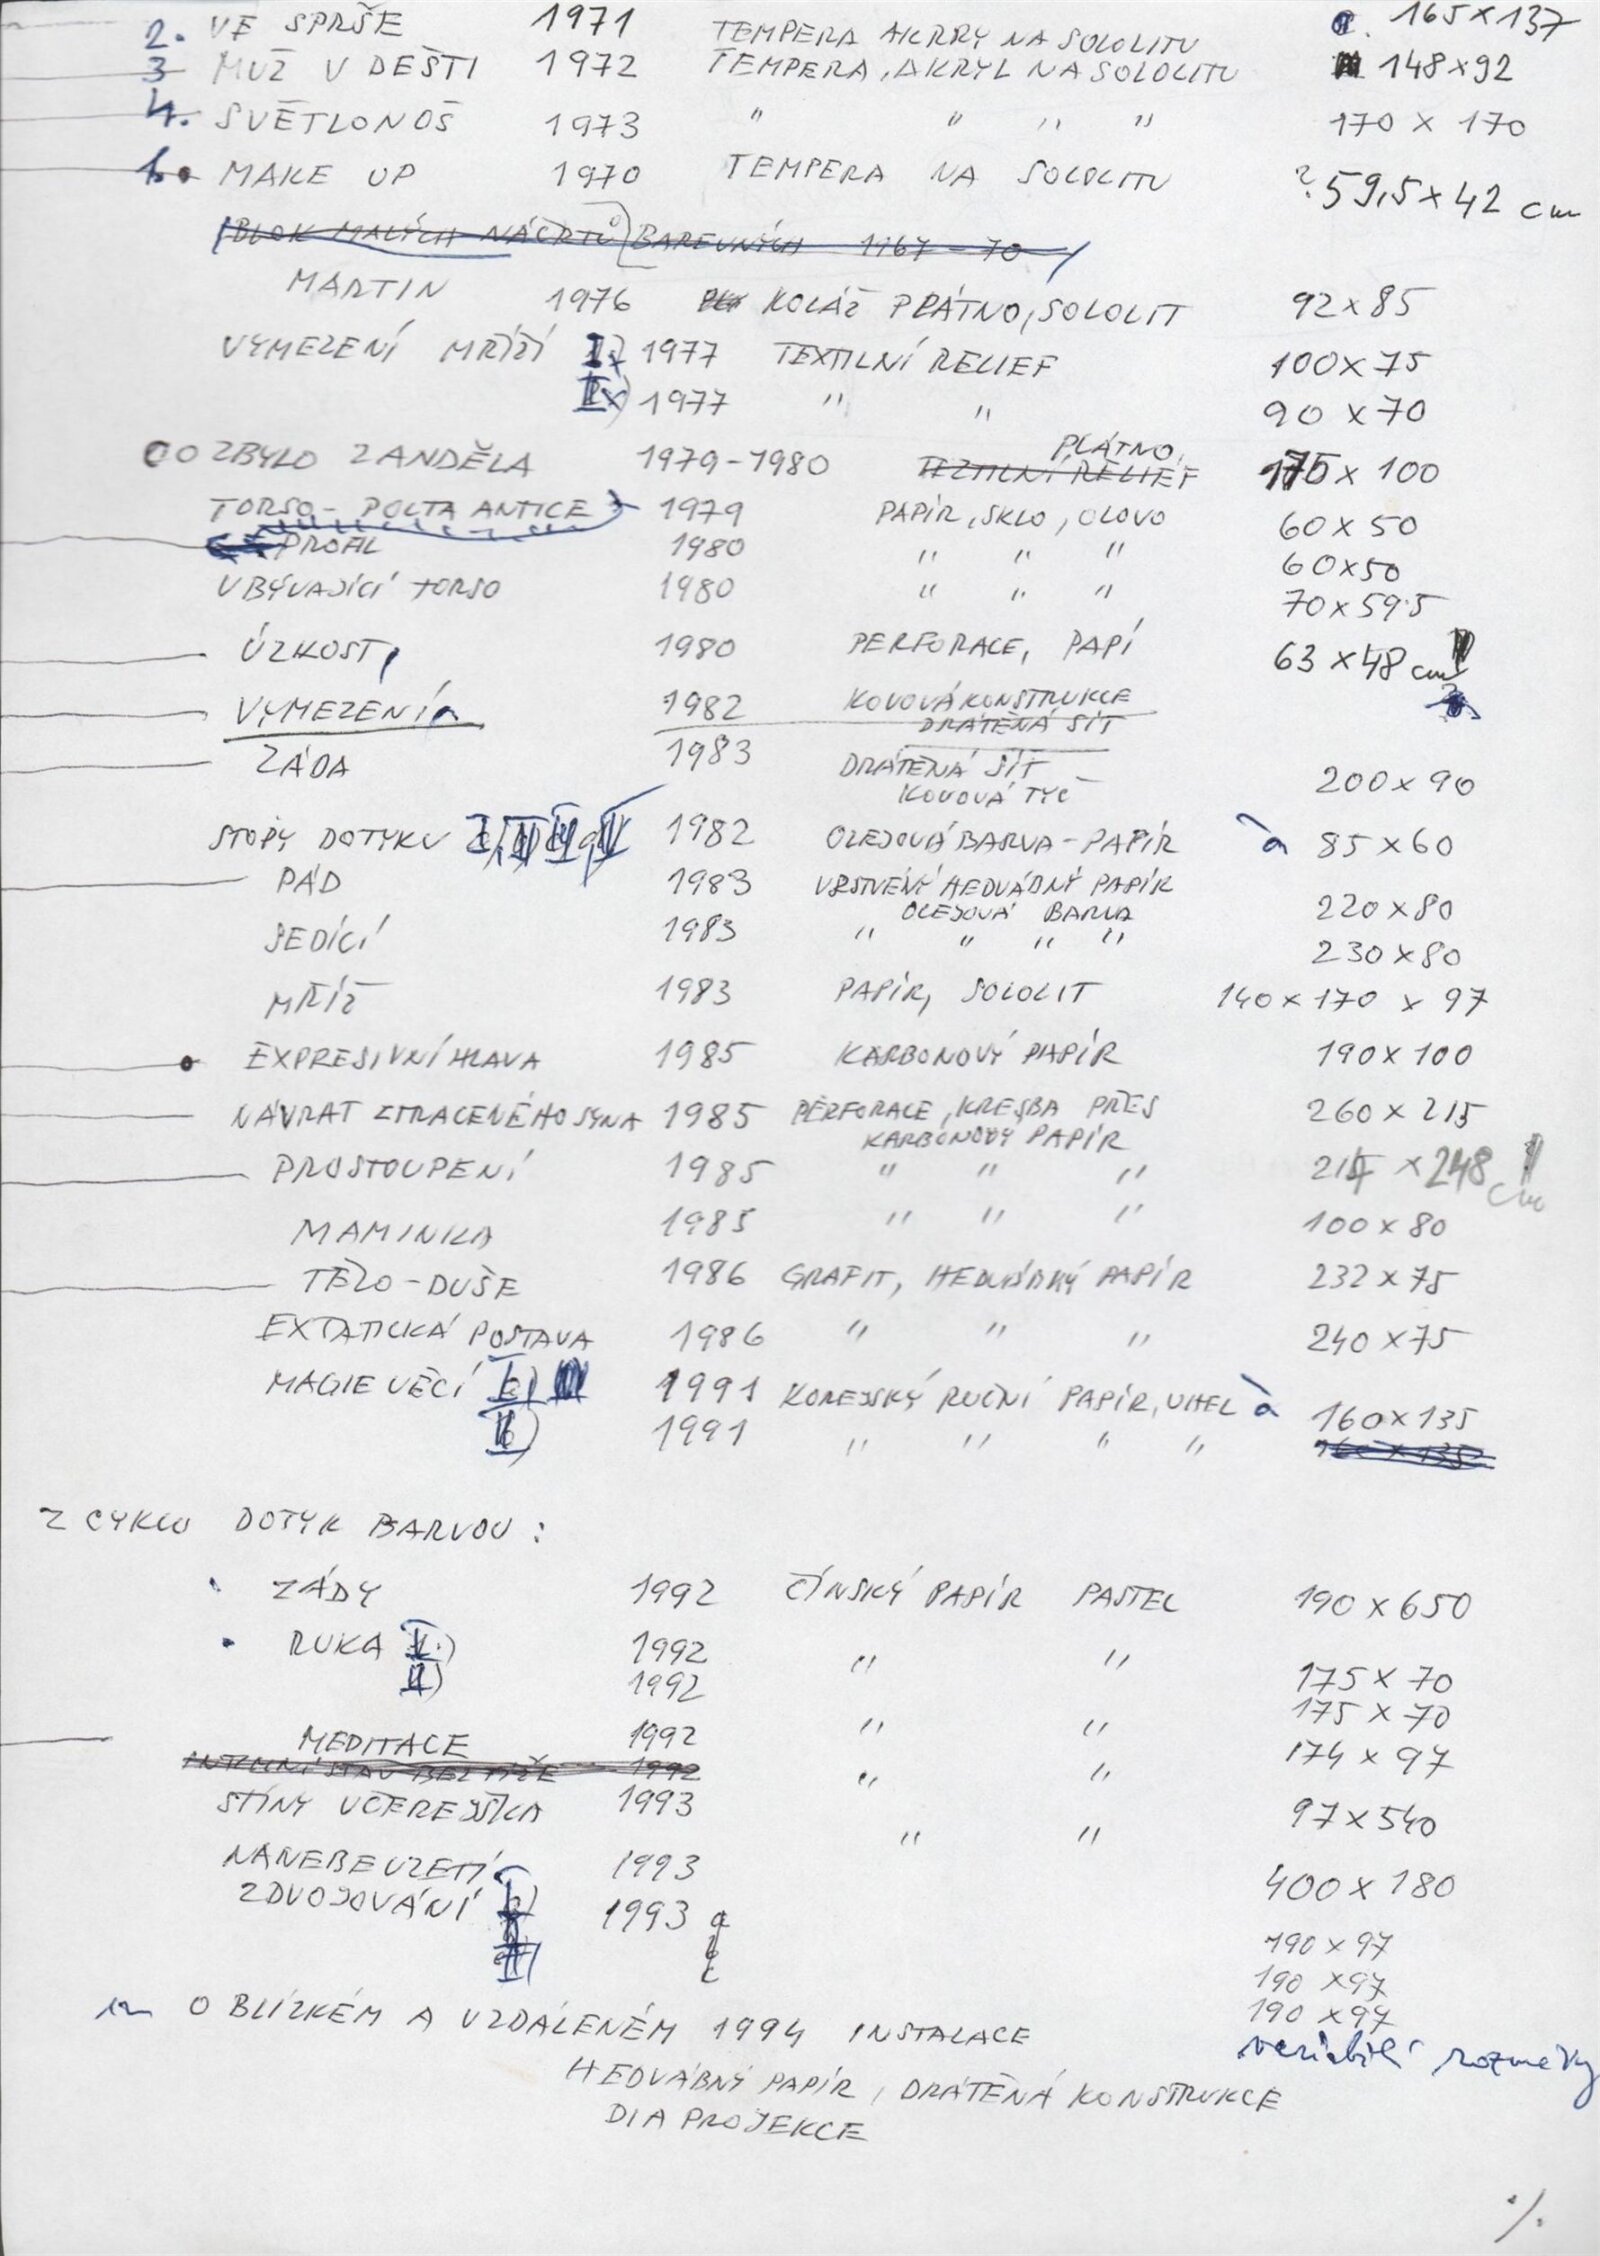 2. VE SPRŠE 1971 TEMPERA AKRRY NA SOLOLITU 165 x 137
3 MUŽ V DEŠTI 1972 TEMPERA, AKRYL NA SOLOLITU 148 x 92
4. SVĚTLONOŠ 1973 " " " " 170 x 170
1. MAKE UP 1970 TEMPERA NA SOLOLITU ? 59,5 x 42 cm
(BLOK MALÝCH NÁČRTŮ) BAREVNÝCH 1967 - 70
MARTIN 1976 KOLÁŽ PLÁTNO, SOLOLIT 92 x 85
VYMEZENÍ MŘÍŽÍ I) 1977 TEXTILNÍ RELIEF 100 x 75
II) 1977 " " 90 x 70
CO ZBYLO Z ANDĚLA 1979-1980 PLÁTNO, TEXTILNÍ RELIEF 175 x 100
TORSO - POCTA ANTICE 1979 PAPÍR, SKLO, OLOVO 60 x 50
PROFIL 1980 " " " 60 x 50
UBÝVAJÍCÍ TORSO 1980 " " " 70 x 59.5
ÚZKOST 1980 PERFORACE, PAPÍ 63 x 48 cm
VYMEZENÍ 1982 KOVOVÁ KONSTRUKCE
DRÁTĚNÁ SÍŤ
ZÁDA 1983 DRÁTĚNÁ SÍŤ 200 x 90
KOVOVÁ TYČ
STOPY DOTYKU 1982 OLEJOVÁ BARVA - PAPÍR à 85 x 60
PÁD 1983 VRSTVENÝ HEDVÁBNÝ PAPÍR 220 x 80
OLEJOVÁ BARVA
SEDÍCÍ 1983 " " " " 230 x 80
MŘÍŽ 1983 PAPÍR, SOLOLIT 140 x 170 x 97
EXPRESIVNÍ HLAVA 1985 KARBONOVÝ PAPÍR 190 x 100
NÁVRAT ZTRACENÉHO SYNA 1985 PERFORACE, KRESBA PŘES 260 x 215
KARBONOVÝ PAPÍR
PROSTOUPENÍ 1985 " " " x 248 cm
MAMINKA 1985 " " " 100 x 80
TĚLO - DUŠE 1986 GRAFIT, HEDVÁBNÝ PAPÍR 232 x 75
EXTATICKÁ POSTAVA 1986 " " " 240 x 75
MAGIE VĚCÍ I) 1991 KOREJSKÝ RUČNÍ PAPÍR, UHEL à 160 x 135
II) 1991 " " " " 160 x 135
Z CYKLU DOTYK BARVOU :
ZÁDY 1992 ČÍNSKÝ PAPÍR PASTEL 190 x 650
RUKA I.) 1992 " " 175 x 70
II) 1992 175 x 70
MEDITACE 1992 " " 174 x 97
INTIMNÍ STAV BEZ TÍŽE 1992 " "
STÍNY VČEREJŠKA 1993 97 x 540
NANEBEVZETÍ 1993 " " 400 x 180
ZDVOJOVÁNÍ I) 1993 a 190 x 97
II) b 190 x 97
III) c 190 x 97
O BLÍZKÉM A VZDÁLENÉM 1994 INSTALACE variabilí rozměry
HEDVÁBNÝ PAPÍR, DRÁTĚNÁ KONSTRUKCE
DIA PROJEKCE
./.